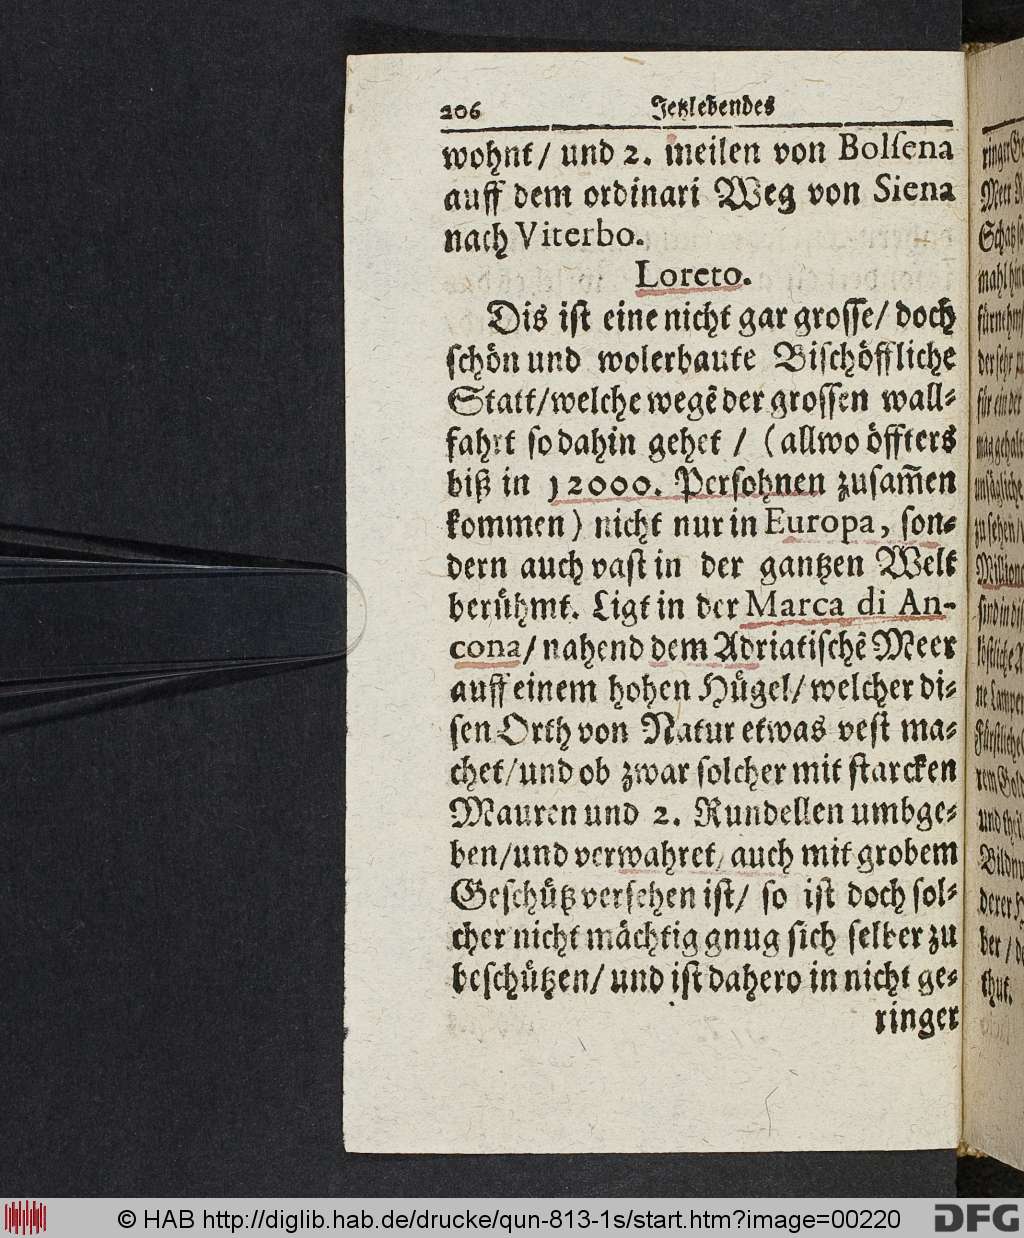 206 Jetzlebendes
wohnt/ und 2. meilen von Bolſena
auff dem ordinari Weg von Siena
nach Viterbo.
Loreto.
Dis iſt eine nicht gar groſſe/ doch
ſchön und wolerbaute Biſchöffliche
Statt/welche wegẽ der groſſen wall-
fahrt ſo dahin gehet / (allwo öffters
biß in 12000. Perſohnen zuſam̃en
kommen) nicht nur in Europa, ſon-
dern auch vaſt in der gantzen Welt
berühmt. Ligt in der Marca di An-
cona/ nahend dem Adriatiſchẽ Meer
auff einem hohen Hügel/ welcher di-
ſen Orth von Natur etwas veſt ma-
chet/und ob zwar ſolcher mit ſtarcken
Mauren und 2. Rundellen umbge-
ben/und verwahret/ auch mit grobem
Geſchütz verſehen iſt/ ſo iſt doch ſol-
cher nicht mächtig gnug ſich ſelber zu
beſchützen/ und iſt dahero in nicht ge-
ringer
© HAB http://diglib.hab.de/drucke/qun-813-1s/start.htm?image=00220 DFG